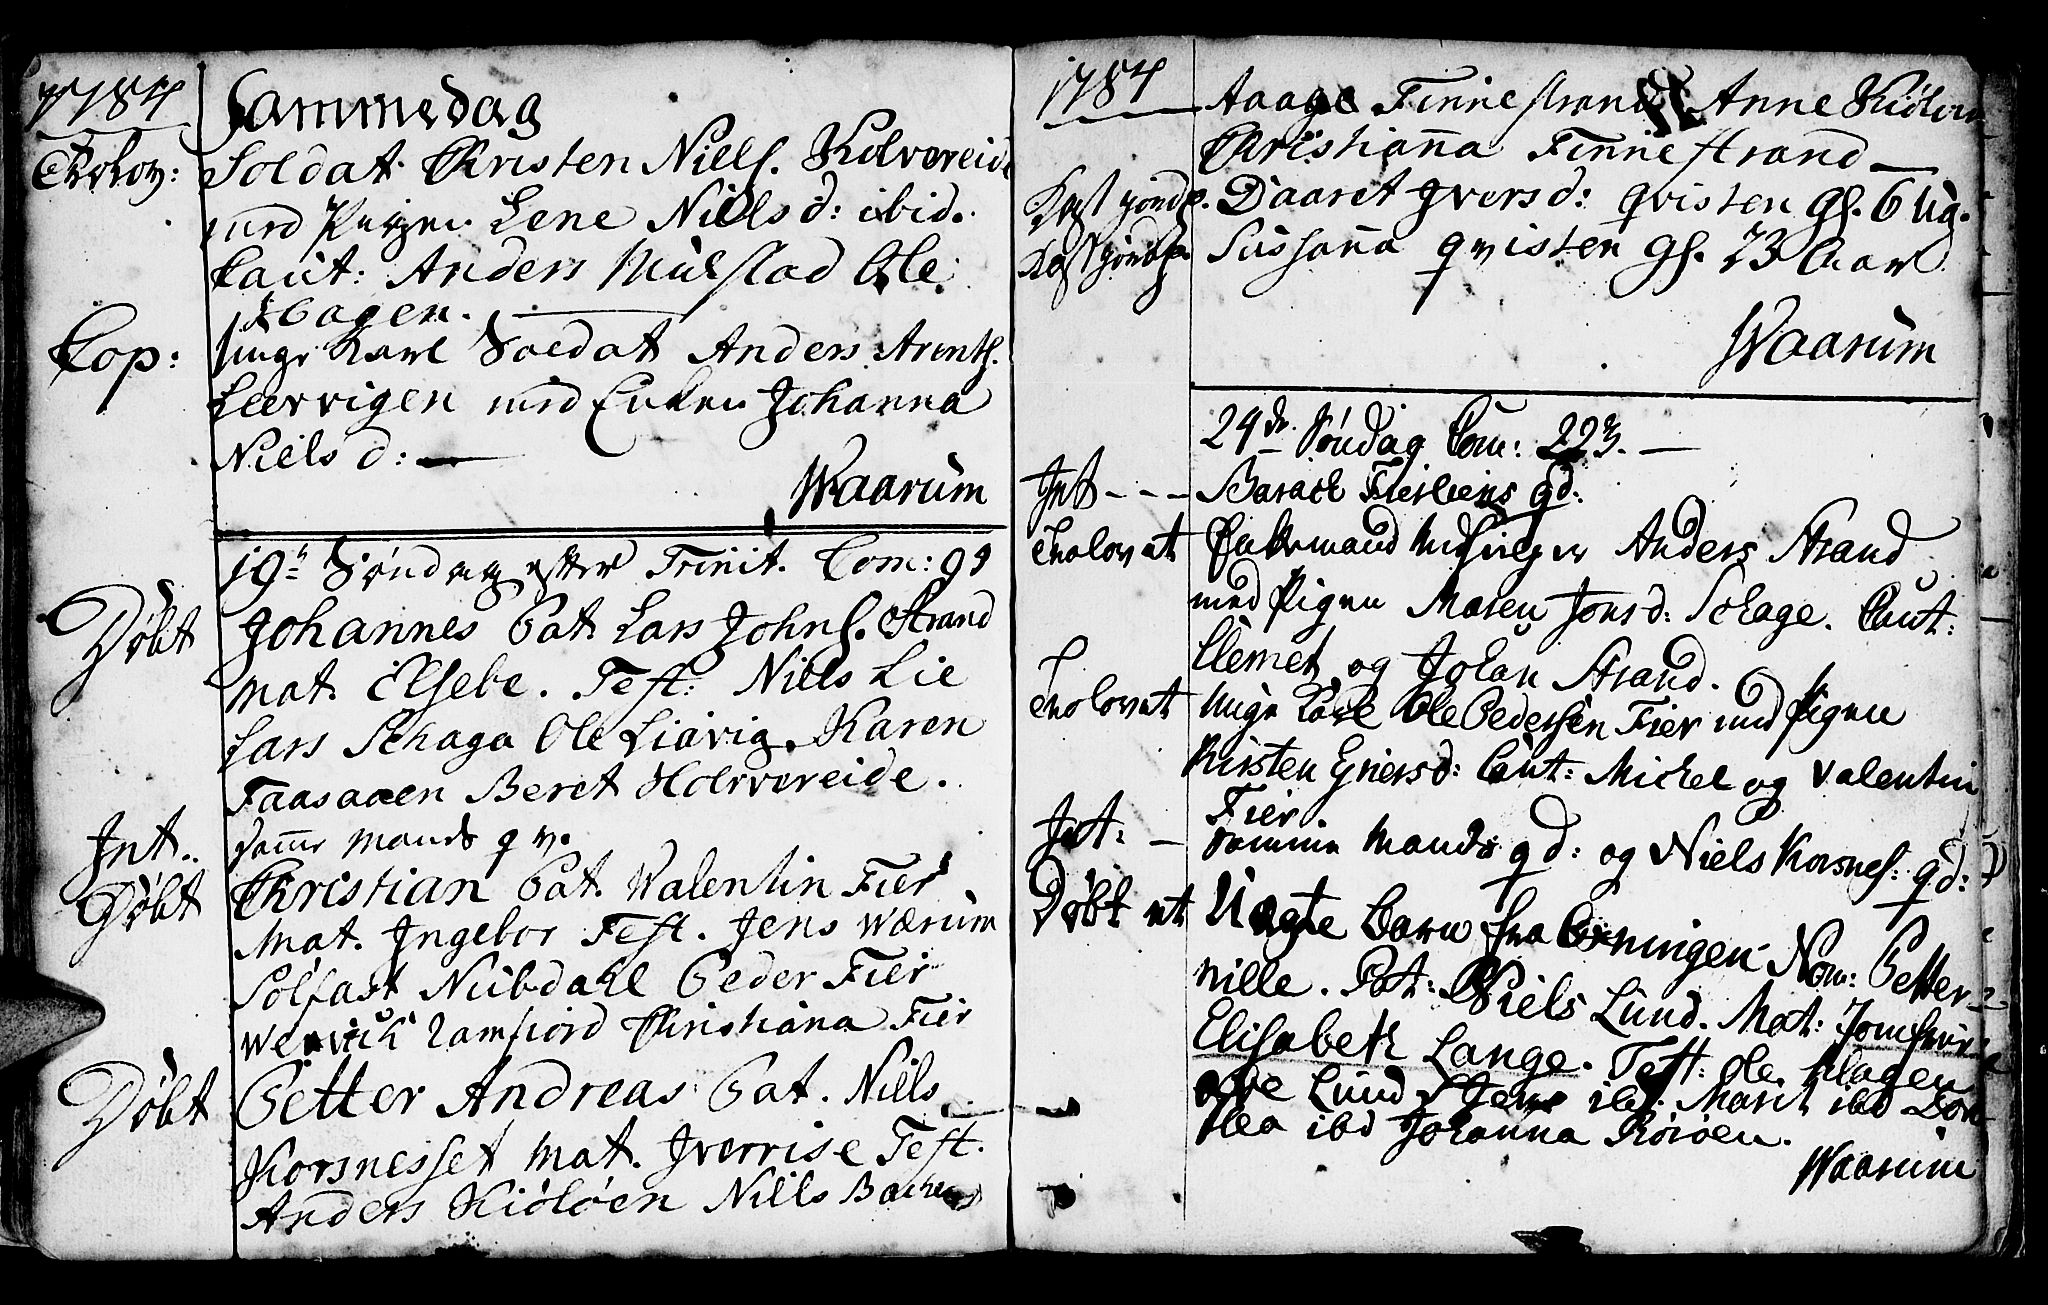 1784
Sammedag
Trolov: Soldat Christen Niels. Kolvereide
med Pigen Lene Nielsd: ibid.
Caut: Anders Mulstad Ole
Hagen.
Cop: unge Karl Soldat Anders Arents.
Leervigen med Enken Johanna
Nielsd:
Waarum
19de Søndag efter Trinit. Com: 99
Døbt Johannes Pat. Lars Johns. Strand
mat. Elsebe. Test: Niels Lie
Lars Schaga Ole Liavig. Karen
Faasaaen Beret Holvereide.
Int.. samme Mands qv.
Døbt Christian Pat. Walentin Fier
Mat. Ingebor Test. Jens Wærum
Solfast Nubdahl Peder Fier
ramfiord Christiana Fier
Døbt Petter Andreas Pat. Niels
Korsnesset mat. Iverrise Test.
Anders Kiöløen Niels
1784
Aaage Finnestrand Anne
Christianna Finnestrand
Daaret Iversd: qvisten gl. 6 Ug.
Sussanna qvisten gl. 73 Aar
Waarum
24de Søndag Com: 223.
Int --- Barach Fierliens qd:
Trolovet Enkemand Anders Strand
med Pigen Maren Jonsd: Schage. Caut:
Clemet og Johan Strand.
Trolovet Unge Karl Ole Pedersen Fier med Pigen
Kirsten Griersd: Caut: Michel og Valentin
Fier
Int: — samme Mands qd: og Niels Korsnes: qd:
Døbt et Uægte Barn fra Nom: Petter-
nille. Pat: Niels Lund. Mat: Jomfrue
Elisabeth Lange. Test: Ole Hagen
Ole Lund Jens ibd: Marit ibd Dor-
thea ibd Johanna
Waarum